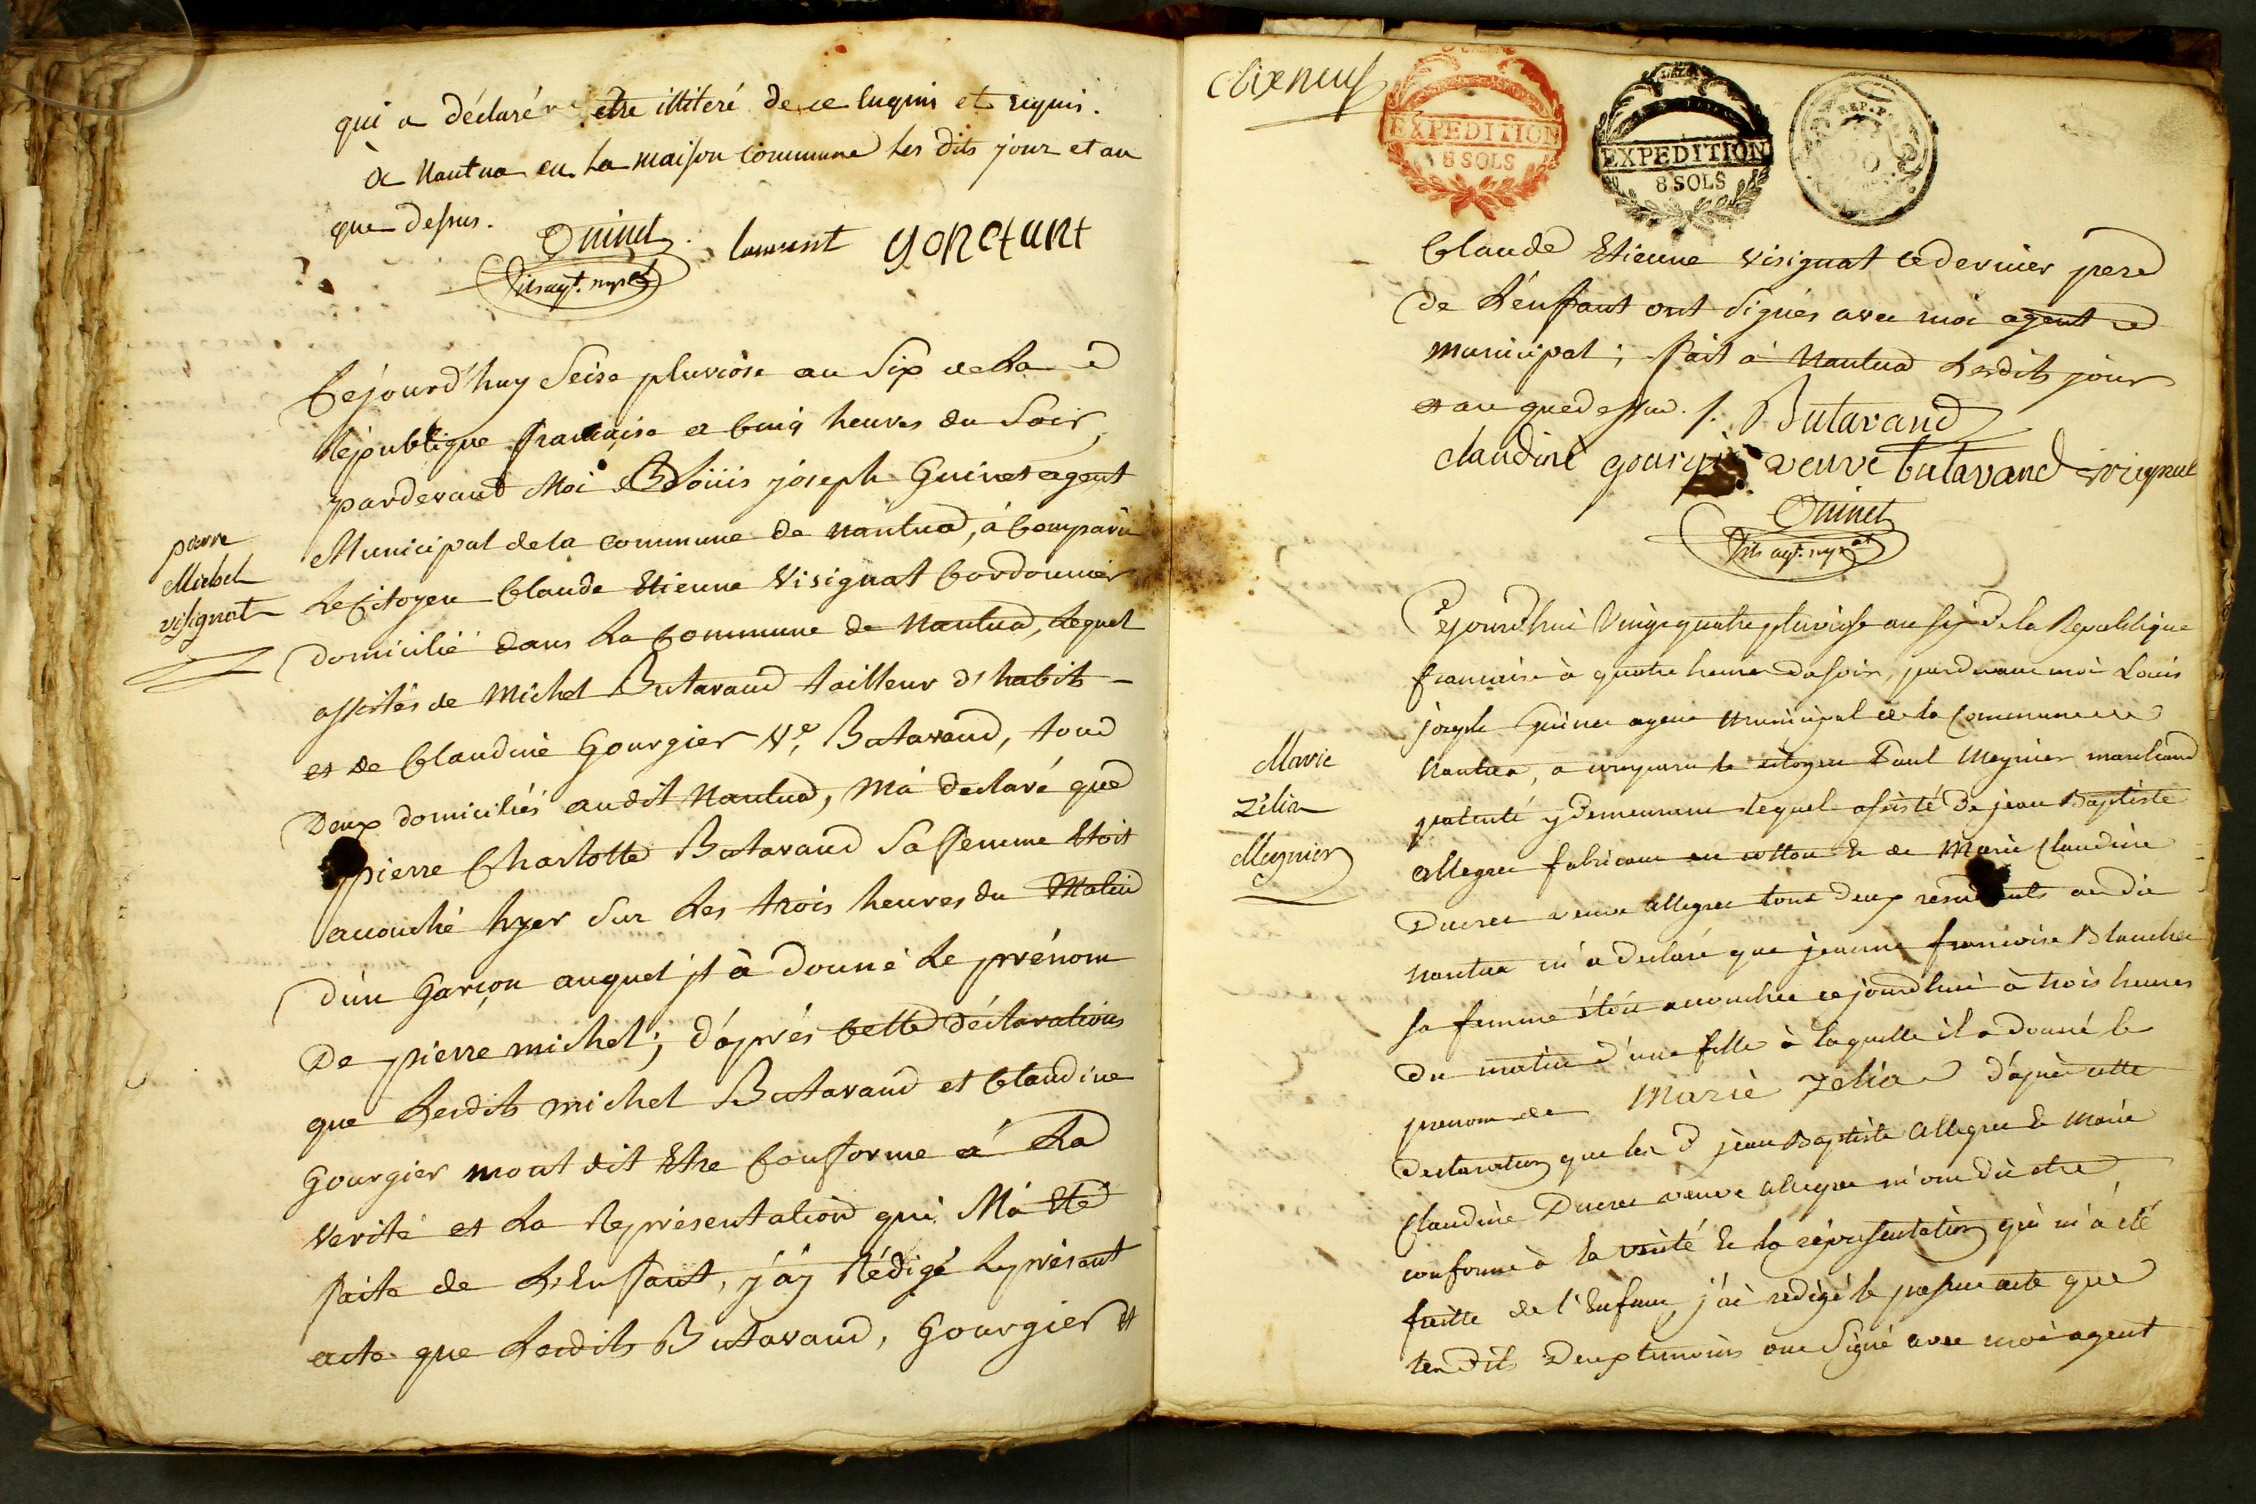 qui a déclaré etre illiteré de ce enquis et requis.
à Nantua en la maison commune les dits jour et an
que dessus.
Quinet laurent gonctant
agt. mpal
Cejourd'huy Seise pluviôse an Six de La
République française a Cinq heures du Soir,
pardevant Moi Loüis joseph Guinet agent
Municipal de la commune de Nantua, à Comparu
Le Citoyen Claude Etienne Visignat Cordonnier
domicilié dans La Commune de Nantua, Lequel
assistés de Michel Butavand tailleur d'habits
et de Claudine Gourgier Ve. Butavand, tous
Deux domiciliés audit Nantua, Má declaré que
pierre Charlotte Butavand Sa femme Etoit
accouché hyer Sur Les trois heures du Matin
d'un Garçon auquel jl à donné Le prénom
De pierre michel; d'après Cette déclaration
que Lesdits michel Butavand et Claudine
Gourgier mont dit Etre Conforme a La
Verité et La Représentation qui Má Eté
faite de L'Enfant, j'ay Rédigé Le présent
acte que Lesdits Butavand, Gourgier et
pierre
Michel
visignat
dixneuf
EXPEDITION
8 SOLS
EXPEDITION
8 SOLS
REP. FRA
Claude Etienne Visignat Ce dernier pere
de L'énfant ont Signés avec moi agent
municipal; fait a Nantua Lesdits jour
et an que dessus. Butavand
claudine gourgie veuve butavand visignat
Quinet
agt. mpal
Cejourdhui Vingt quatre pluviose an six de la Republique
francaise à quatre heures du soir, pardevant moi Louis
joseph Guinet agent Municipal de la Commune de
Nantua, a comparu le citoyen Paul Meynier marchand
patenté y Demeurant lequel assisté de jean Baptiste
Allegret fabricant en cotton & de Marie Claudine
Ducret veuve Allegret tous Deux residents au dit
Nantua m'a declaré que jeanne francoise Blanchet
sa femme étoit accouchée cejourdhui à trois heures
Du matin d'une fille à laquelle il a donné le
prenom de Marie Zelia d'après cette
Declaration que les d jean Baptiste Allegret & Marie
Claudine Ducret veuve Allegret m'ont dit etre
conforme à la verité & la représentation qui m'a été
faitte de l'Enfant, j'ai redigé le present acte que
les Dits Deux temoins ont Signé avec moi agent
Marie
Zélia
Meynier